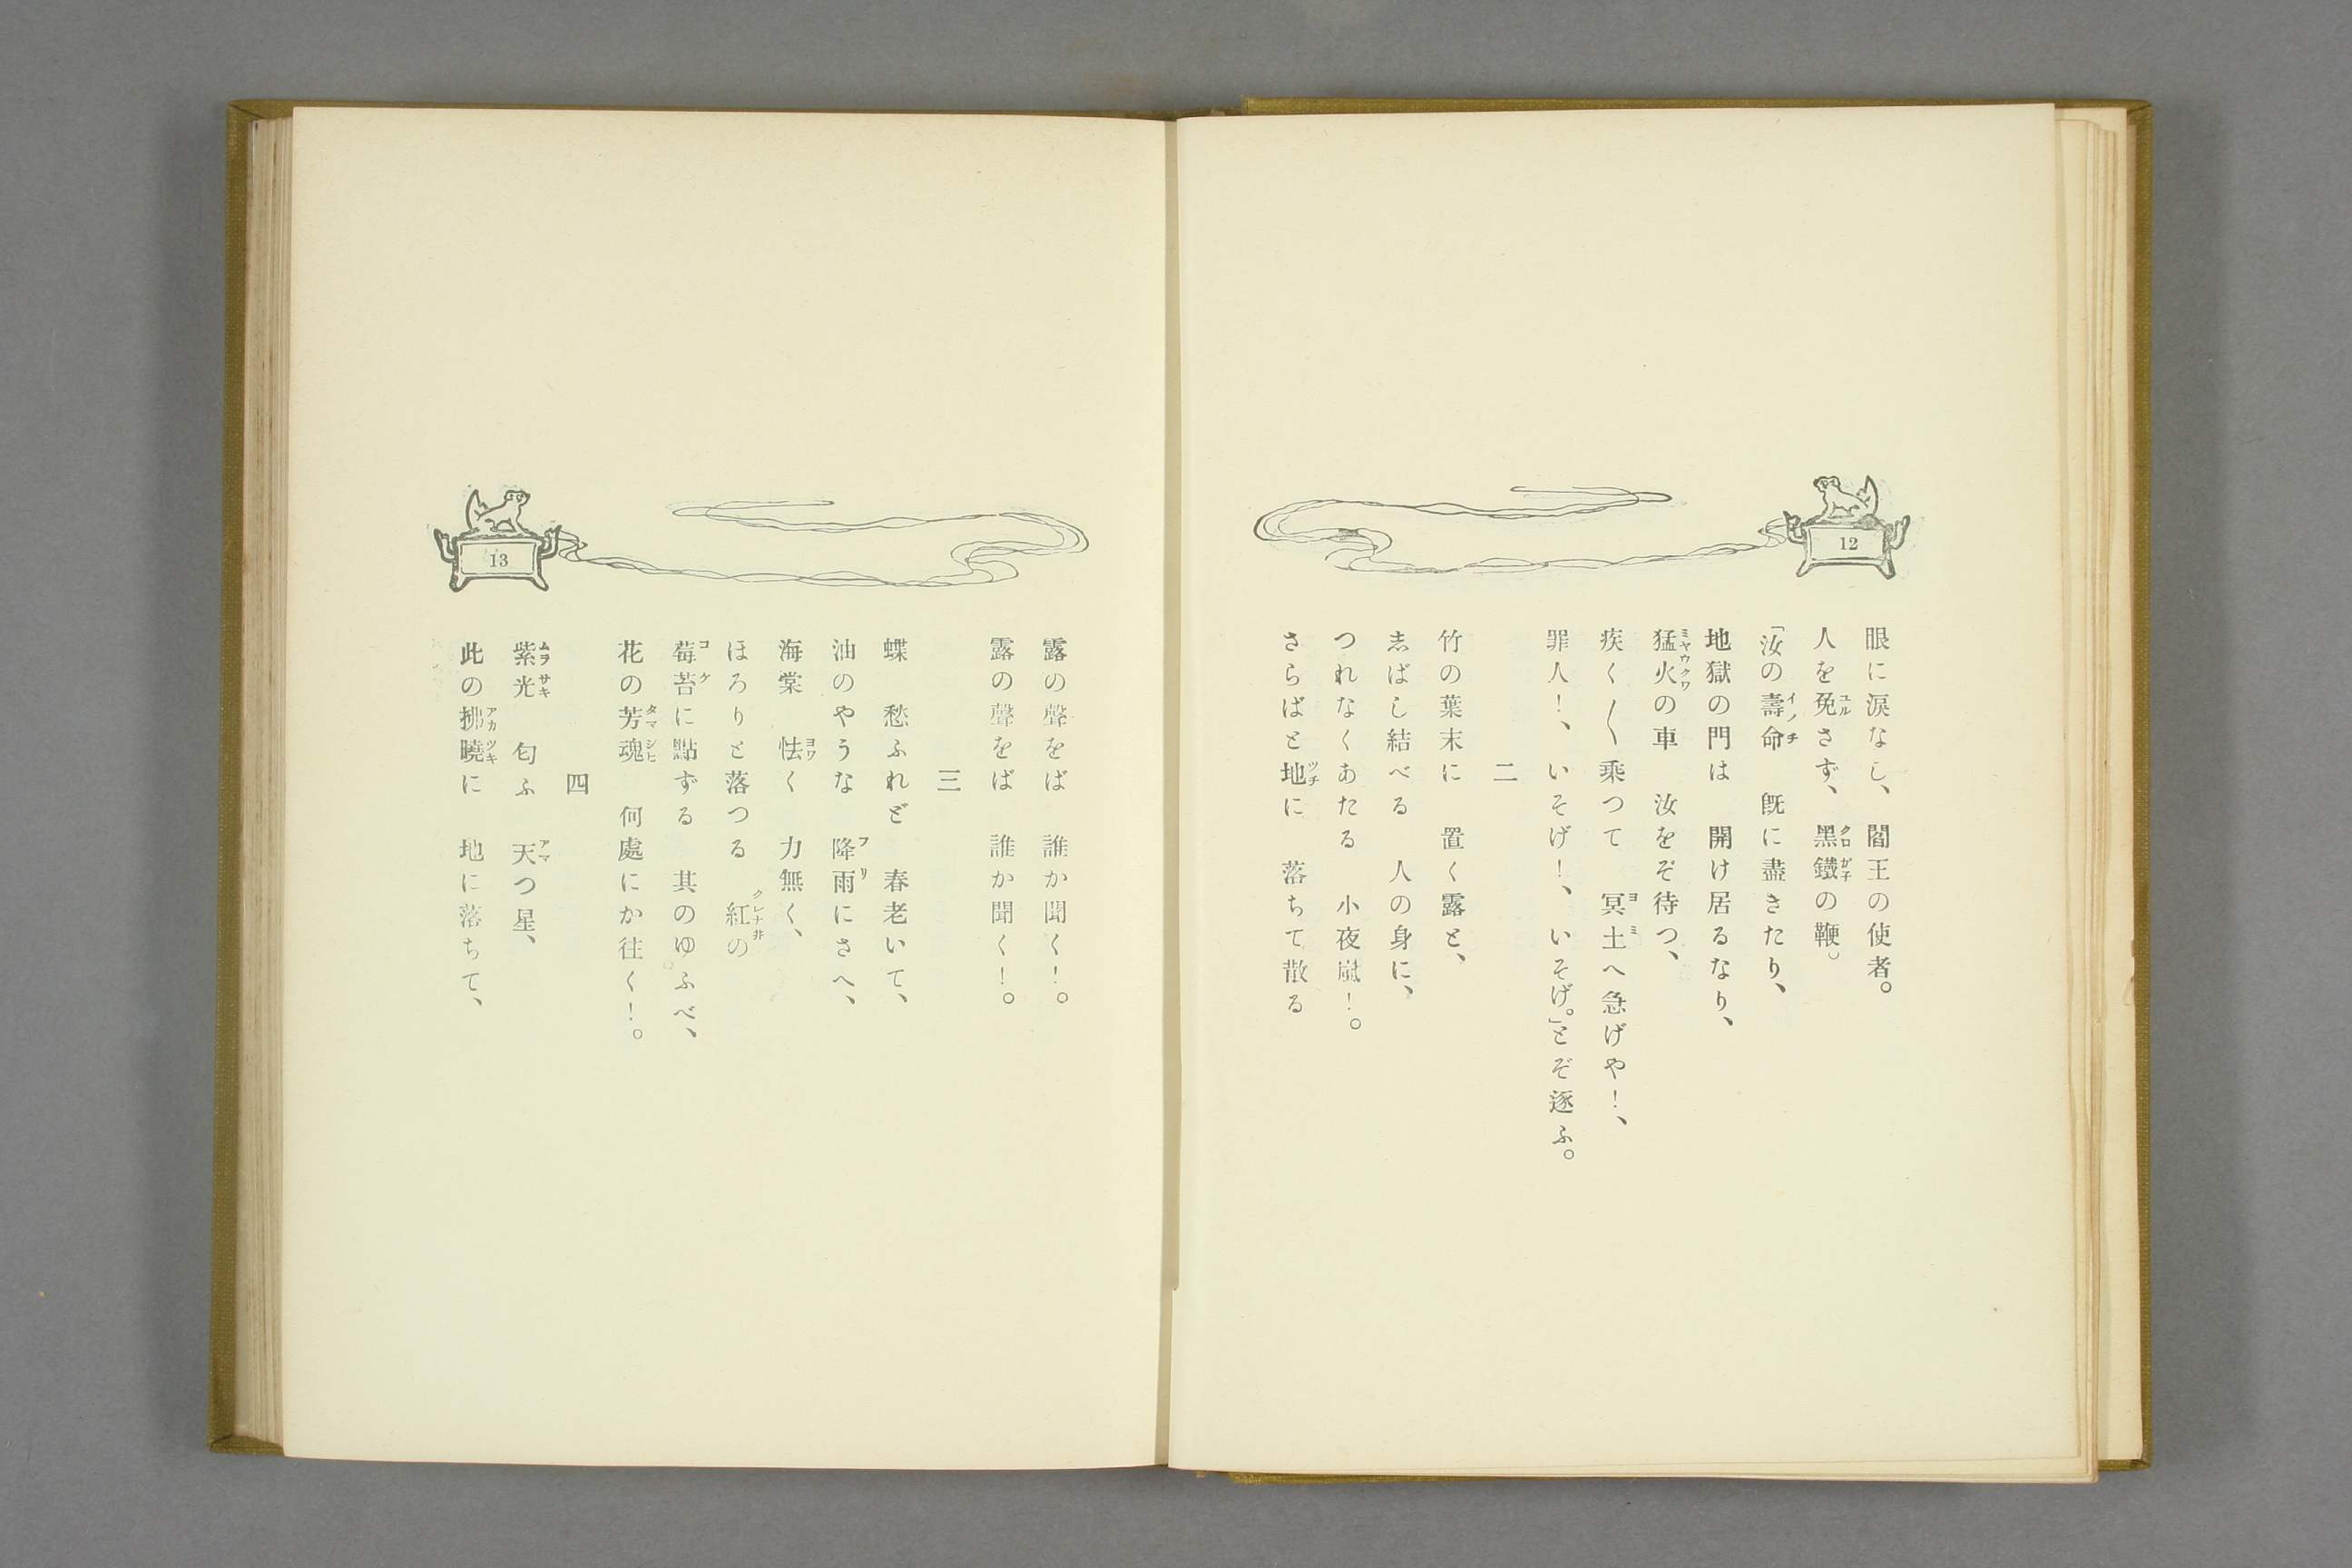 12
眼に淚なし、　閻王の使者。
人を免さず、　黑鐵の鞭。
「汝の壽命　既に盡きたり、
地獄の門は　開け居るなり、
猛火の車　汝をぞ待つ、
疾く〱乘つて　冥土へ急げや！、
罪人！、いそげ！、いそげ。」とぞ逐ふ。
二
竹の葉末に　置く露と、
志ばし結べる　人の身に、
つれなくあたる　小夜嵐！。
さらばと地に　落ちて散る
13
露の聲をば　誰か聞く！。
露の聲をば　誰か聞く！。
三
蝶　愁ふれど　春老いて、
油のやうな　降雨にさへ、
海棠　怯く　力無く、
ほろりと落つる　紅の
莓苔に點ずる　其のゆふべ、
花の芳魂　何處にか往く！。
四
紫光　匂ふ　天つ星、
此の拂曉に　地に落ちて、